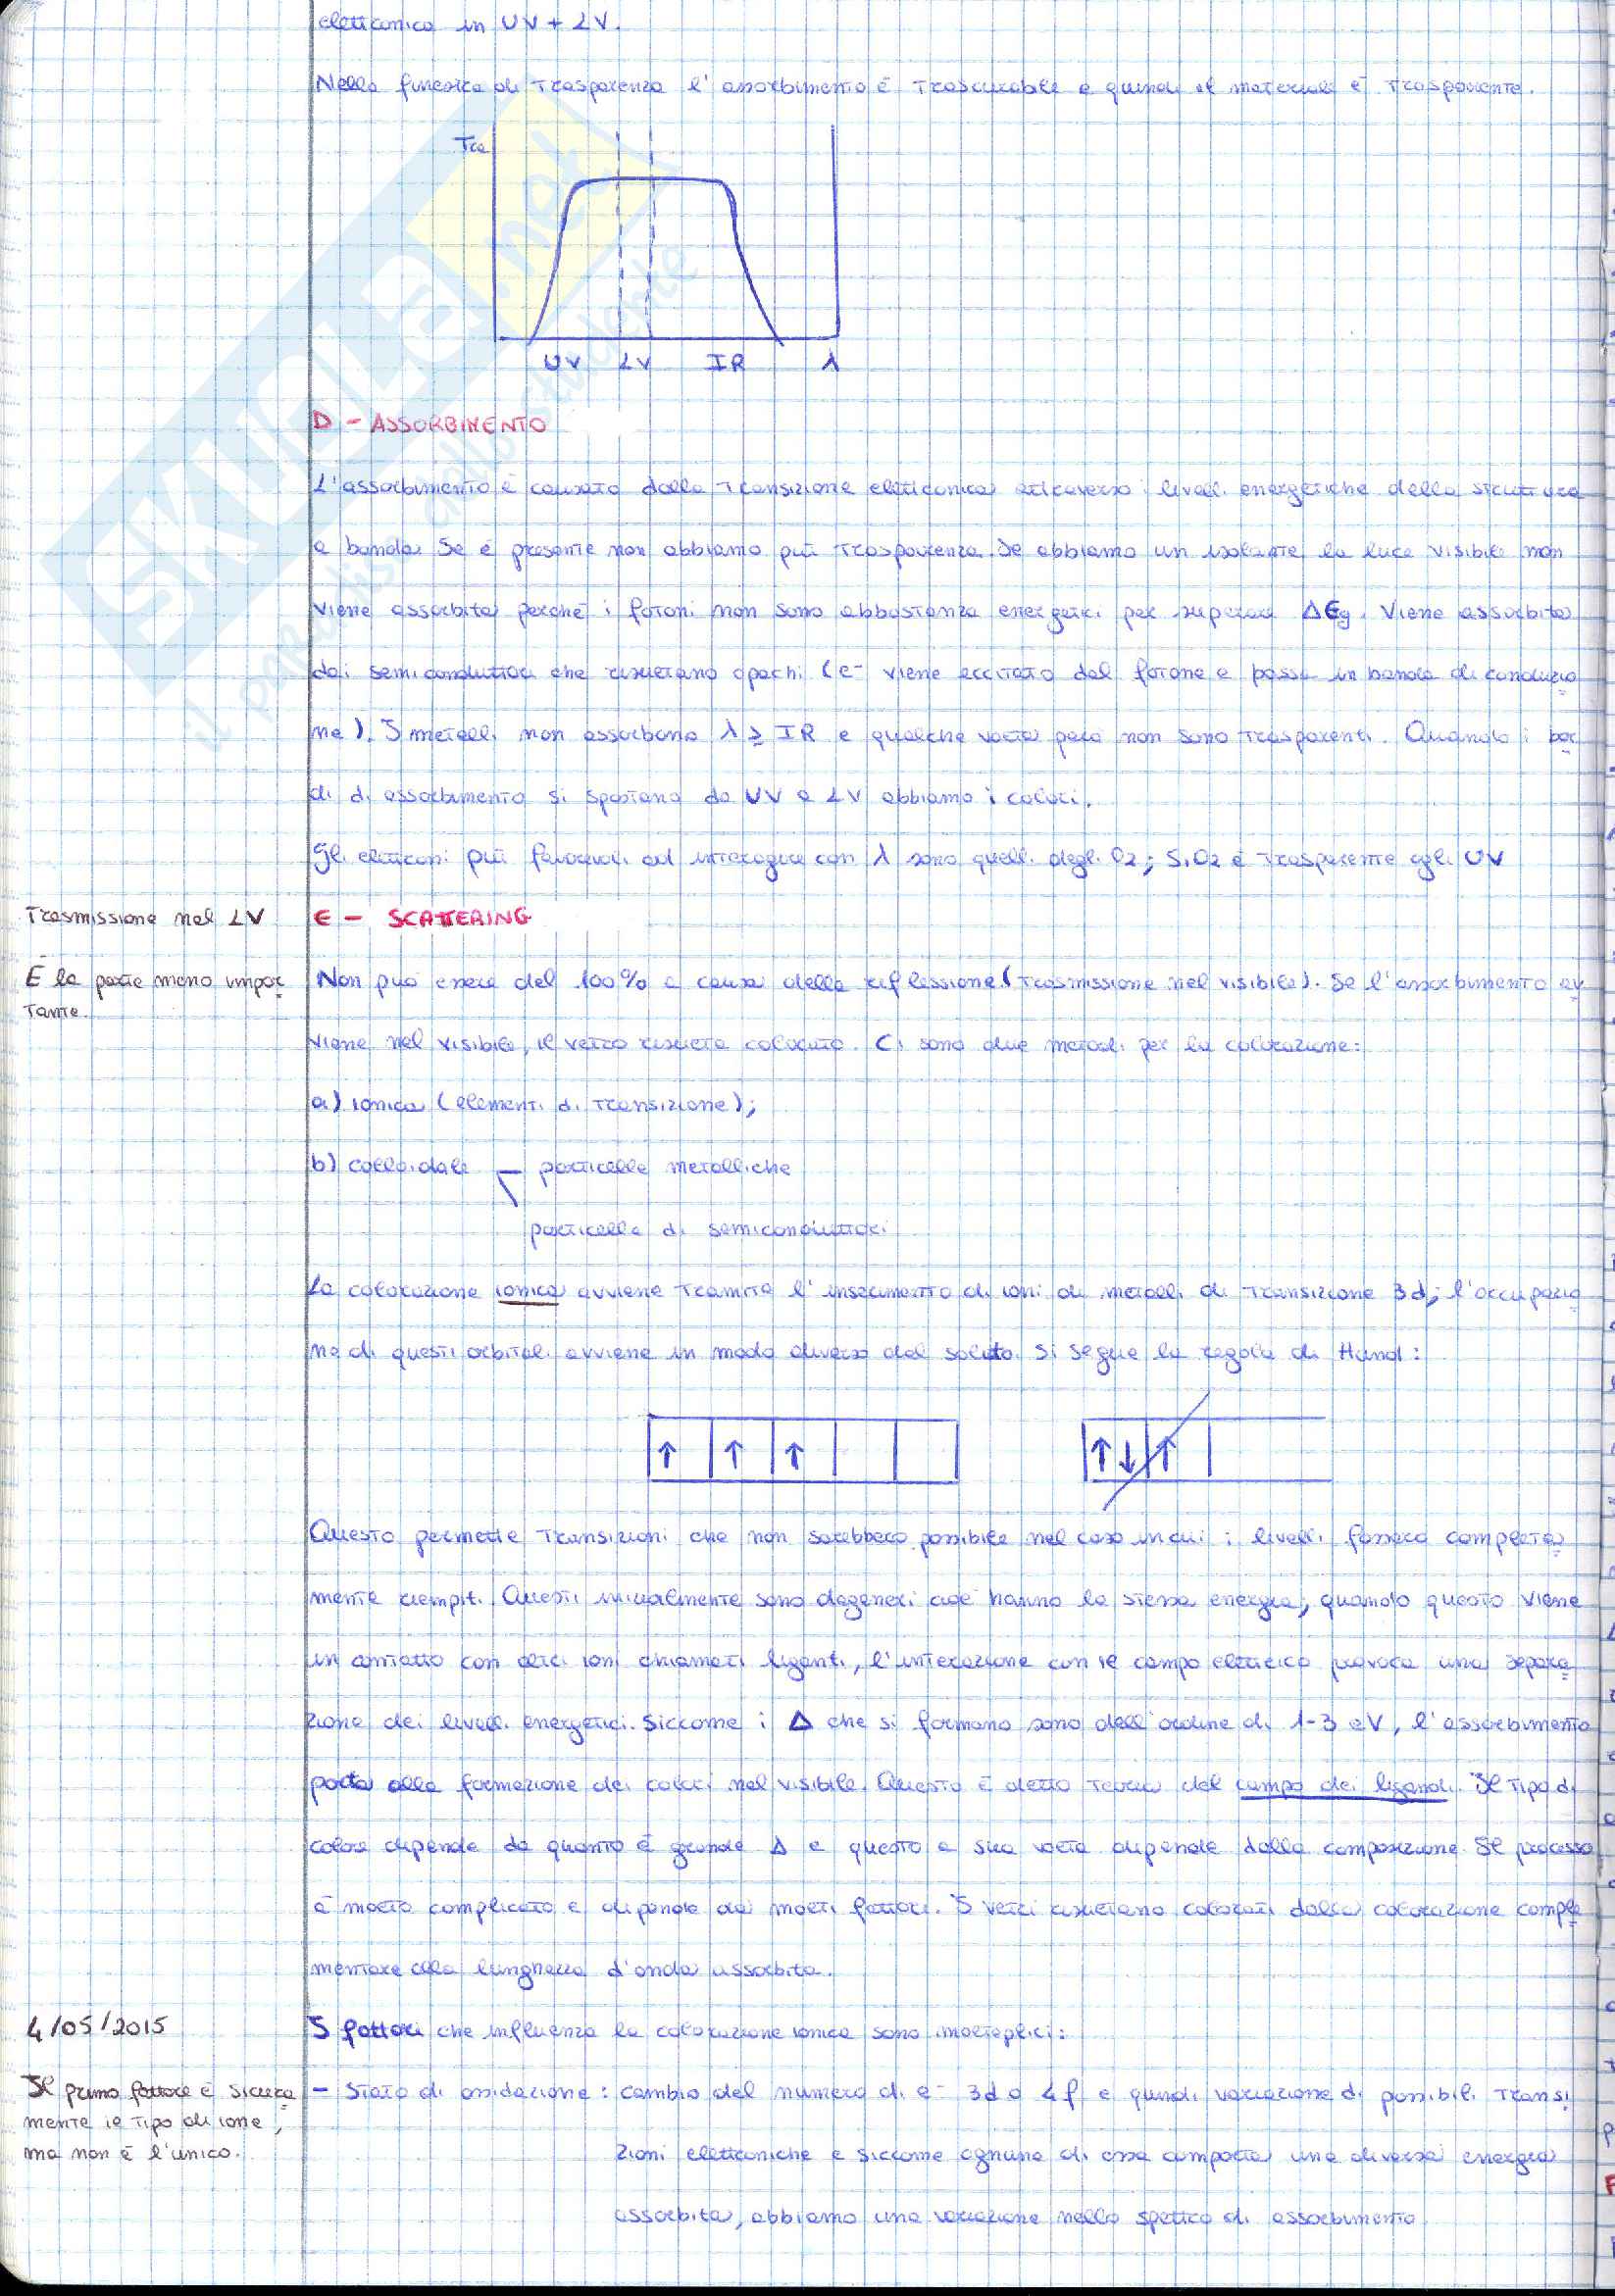 elettronico in UV + LV.
Nella finestra di trasparenza l'assorbimento è trascurabile e quindi il materiale è trasparente.
Tra
UV LV IR λ
D - ASSORBIMENTO
L'assorbimento è causato dalla transizione elettronica attraverso i livelli energetiche della struttura
a banda. Se è presente non abbiamo più trasparenza. Se abbiamo un isolante la luce visibile non
viene assorbita perché i fotoni non sono abbastanza energetici per superare ΔEg. Viene assorbita
dai semiconduttori che risultano opachi (e⁻ viene eccitato dal fotone e passa in banda di conduzio
ne). I metalli non assorbono λ ≥ IR e qualche volta però non sono trasparenti. Quando i bor
di di assorbimento si spostano da UV a LV abbiamo i colori.
Gli elettroni più favorevoli ad interagire con λ sono quelli degli O2; SiO2 è trasparente agli UV
Trasmissione nel LV
E - SCATTERING
È la parte meno impor
tante.
Non può essere del 100% a causa della riflessione (trasmissione nel visibile). Se l'assorbimento av
viene nel visibile, il vetro risulta colorato. Ci sono due metodi per la colorazione:
a) ionica (elementi di transizione);
b) colloidale particelle metalliche
particelle di semiconduttori
La colorazione ionica avviene tramite l'inserimento di ioni di metalli di transizione 3d; l'occupazio
ne di questi orbitali avviene in modo diverso dal solito. Si segue la regola di Hund:
↑ ↑ ↑ ↑↓ ↑
Questo permette transizioni che non sarebbero possibile nel caso in cui i livelli fossero completa
mente riempiti. Questi inizialmente sono degeneri cioè hanno la stessa energia, quando questo viene
in contatto con altri ioni chiamati liganti, l'interazione con il campo elettrico provoca una separa
zione dei livelli energetici. Siccome i Δ che si formano sono dell'ordine di 1-3 eV, l'assorbimento
porta alla formazione dei colori nel visibile. Questo è detto teoria del campo dei ligandi. Il tipo di
colore dipende da quanto è grande Δ e questo a sua volta dipende dalla composizione. Il processo
è molto complicato e dipende da molti fattori. I vetri risultano colorati dalla colorazione comple
mentare alla lunghezza d'onda assorbita.
4/05/2015
I fattori che influenza la colorazione ionica sono molteplici:
Il primo fattore è sicura
mente il tipo di ione,
ma non è l'unico.
- Stato di ossidazione: cambio del numero di e⁻ 3d o 4f e quindi variazione di possibili transi
zioni elettroniche e siccome ognuna di esse comporta una diversa energia
assorbita, abbiamo una variazione nello spettro di assorbimento